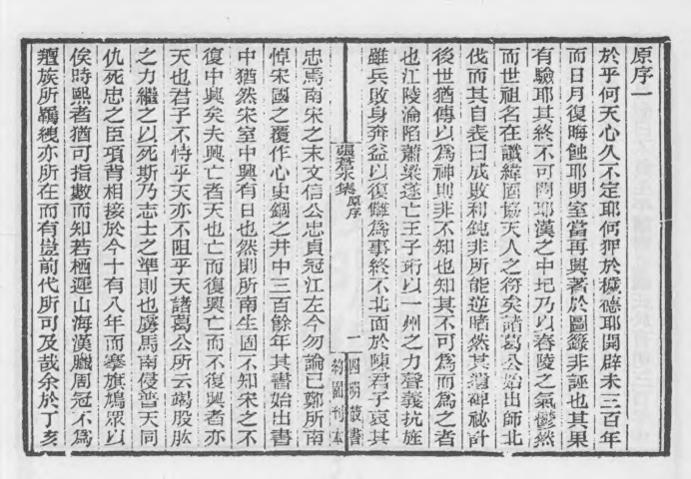 原序一
於乎何天心久不定耶何狎於穢德耶開辟未三百年
而日月復晦蝕耶明室當再興著於圖籙非誣也其果
有驗耶其終不可問耶漢之中圮乃以舂陵之氣鬱然
而世祖名在讖緯固協天人之符矣諸葛公始出師北
伐而其自表曰成敗利鈍非所能逆睹然其遺神秘計
後世猶傳以爲神則非不知也知其不可爲而爲之者
也江陵淪陷蕭梁遂亡王子珩以一州之力聲義抗旌
雖兵敗身奔益以復讎爲事終不北面於陳君子哀其
張蒼水集 原序
一
四明叢書
約園刊本
忠焉南宋之末文信公忠貞冠江左今勿論已鄭所南
悼宋國之覆作心史錮之井中三百餘年其書始出書
中猶然宋室中興有日也然則所南生固不知宋之不
復中興矣夫興亡者天也亡而復興亡而不復興者亦
天也君子不恃乎天亦不阻乎天諸葛公所云竭股肱
之力繼之以死斯乃志士之準則也虜馬南侵普天同
仇死忠之臣項背相接於今十有八年而搴旗鳩眾以
俟時熙者猶可指數而知若栖遲山海漢臘周冠不爲
羶族所羈紲亦所在而有豈前代所可及哉余於丁亥